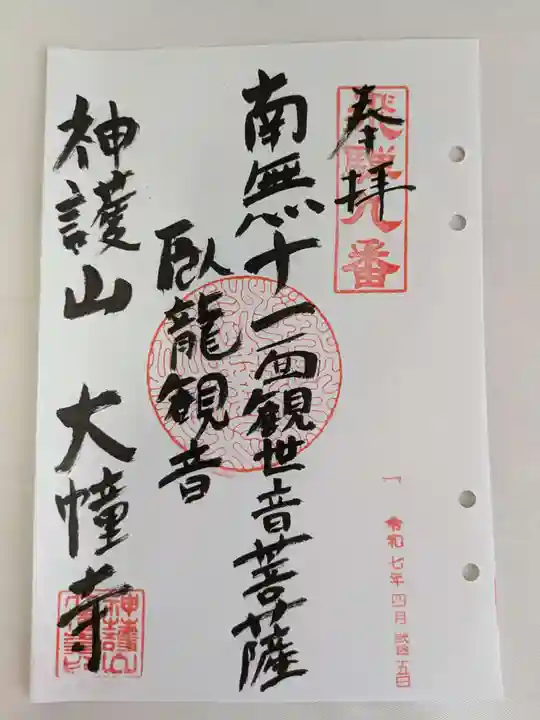 奉拝
飛騨八番
南無十一面観世音菩薩
臥龍観音
神護山 大幢寺
令和七年四月弐拾五日